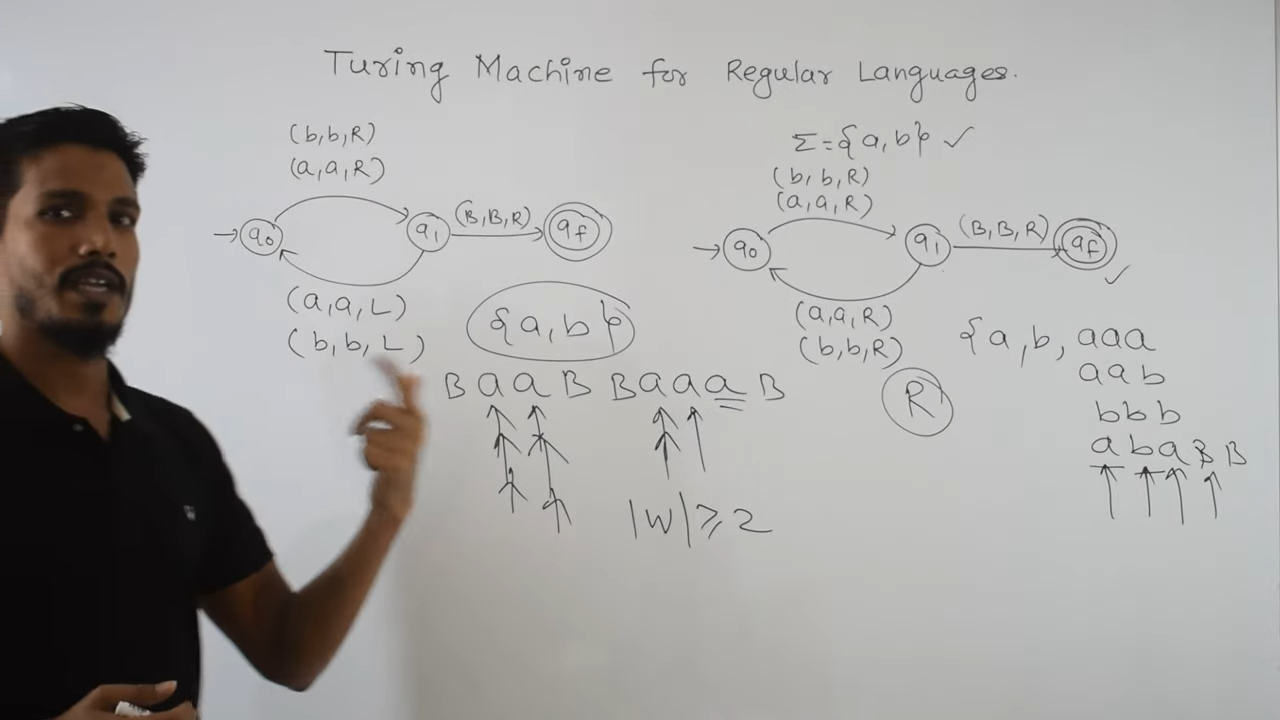 Turing Machine for Regular Languages.
(b,b,R)
(a,a,R)
q₀
q₁
(B,B,R)
qf
(a,a,L)
(b,b,L)
{a,b}
B a a B B a a a B
|W|⩾2
Σ={a,b} ✓
(b,b,R)
(a,a,R)
q₀
q₁
(B,B,R)
qf
✓
(a,a,R)
(b,b,R)
R
{a,b, aaa
aab
bbb
abaBB